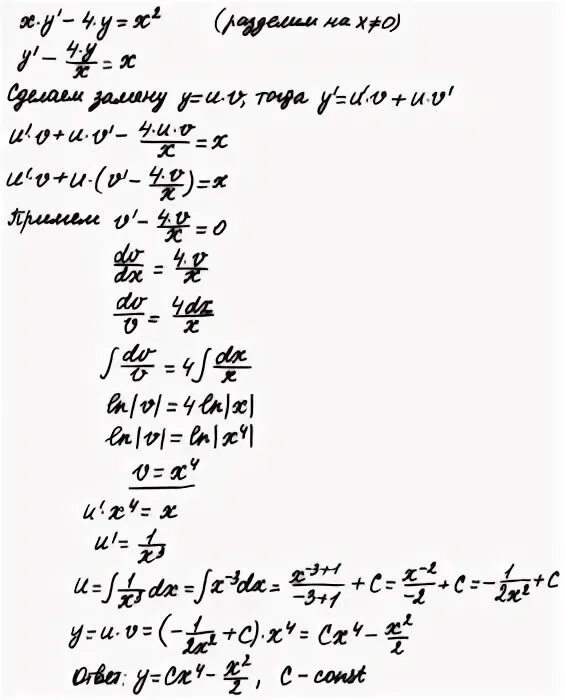 x·y' - 4·y = x² (разделим на x≠0)
y' - 4·y/x = x
Сделаем замену y=u·v, тогда y'=u'·v + u·v'
u'·v + u·v' - 4·u·v/x = x
u'·v + u·(v' - 4·v/x) = x
Примем v' - 4·v/x = 0
dv/dx = 4·v/x
dv/v = 4dx/x
∫dv/v = 4∫dx/x
ln|v| = 4ln|x|
ln|v| = ln|x⁴|
v = x⁴
u'·x⁴ = x
u' = 1/x³
u = ∫1/x³ dx = ∫x⁻³dx = x⁻³⁺¹/-3+1 + C = x⁻²/-2 + C = -1/2x² + C
y = u·v = (-1/2x² + C)·x⁴ = Cx⁴ - x²/2
Ответ: y = Cx⁴ - x²/2, C - const